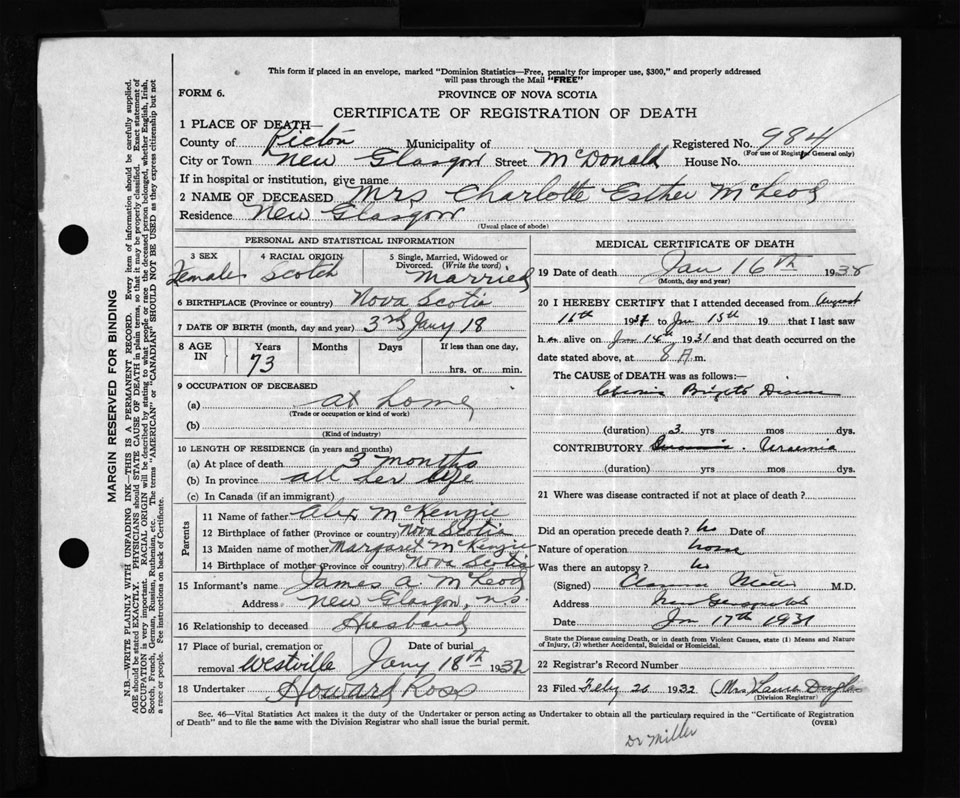 This form if placed in an envelope, marked "Dominion Statistics—Free, penalty for improper use, $300," and properly addressed
will pass through the Mail "FREE"
FORM 6.
PROVINCE OF NOVA SCOTIA
CERTIFICATE OF REGISTRATION OF DEATH
1 PLACE OF DEATH—
County of Pictou Municipality of Registered No. 984
(For use of Registrar General only)
City or Town New Glasgow Street McDonald House No.
If in hospital or institution, give name
2 NAME OF DECEASED Mrs Charlotte Esther McLeod
Residence New Glasgow
(Usual place of abode)
PERSONAL AND STATISTICAL INFORMATION
3 SEX 4 RACIAL ORIGIN 5 Single, Married, Widowed or
Divorced. (Write the word)
Female Scotch Married
6 BIRTHPLACE (Province or country) Nova Scotia
7 DATE OF BIRTH (month, day and year) 3rd Jany 18
8 AGE IN Years Months Days If less than one day,
73 hrs. or min.
9 OCCUPATION OF DECEASED
(a) at home
(Trade or occupation or kind of work)
(b)
(Kind of industry)
10 LENGTH OF RESIDENCE (in years and months)
(a) At place of death 3 months
(b) In province all her life
(c) In Canada (if an immigrant)
Parents
11 Name of father Alex McKenzie
12 Birthplace of father (Province or country) Nova Scotia
13 Maiden name of mother Margaret McKenzie
14 Birthplace of mother (Province or country) Nova Scotia
15 Informant's name James A. McLeod
Address New Glasgow, N.S.
16 Relationship to deceased Husband
17 Place of burial, cremation or Date of burial
removal Westville Jany 18th 1932
18 Undertaker Howard Ross
MEDICAL CERTIFICATE OF DEATH
19 Date of death Jan 16th 193
(Month, day and year)
20 I HEREBY CERTIFY that I attended deceased from August
16th 1931 to Jan 15th 19 that I last saw
h alive on Jan 14 1931 and that death occurred on the
date stated above, at 8 A.m.
The CAUSE OF DEATH was as follows:—
Chronic Brights Disease
(duration) 3 yrs mos dys.
CONTRIBUTORY Uraemia
(duration) yrs mos dys.
21 Where was disease contracted if not at place of death?
Did an operation precede death? No Date of
Nature of operation none
Was there an autopsy? No
(Signed) Clarence Miller M.D.
Address New Glasgow NS
Date Jan 17th 1931
State the Disease causing Death, or in death from Violent Causes, state (1) Means and Nature
of Injury, (2) whether Accidental, Suicidal or Homicidal.
22 Registrar's Record Number
23 Filed Feby 20 1932 (Mrs) Laura Douglas
(Division Registrar)
Sec. 46—Vital Statistics Act makes it the duty of the Undertaker or person acting as Undertaker to obtain all the particulars required in the "Certificate of Registration
of Death" and to file the same with the Division Registrar who shall issue the burial permit. (OVER)
Dr Miller
MARGIN RESERVED FOR BINDING
N.B.—WRITE PLAINLY WITH UNFADING INK—THIS IS A PERMANENT RECORD. Every item of information should be carefully supplied.
AGE should be stated EXACTLY. PHYSICIANS should STATE CAUSE OF DEATH in plain terms, so that it may be properly classified. Exact statement of
OCCUPATION is very important. RACIAL ORIGIN will be described by stating to what people or race the deceased person belonged, whether English, Irish,
Scotch, French, German, Russian, Ruthenian, etc. The terms "AMERICAN" or "CANADIAN" SHOULD NOT BE USED as they express citizenship but not
a race or people. See instructions on back of Certificate.